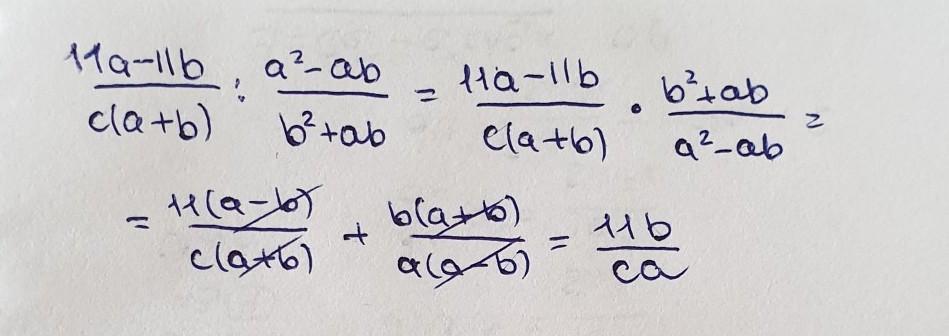 \frac{11a-11b}{c(a+b)} : \frac{a^2-ab}{b^2+ab} = \frac{11a-11b}{c(a+b)} \cdot \frac{b^2+ab}{a^2-ab} =
= \frac{11(a-b)}{c(a+b)} + \frac{b(a+b)}{a(a-b)} = \frac{11b}{ca}